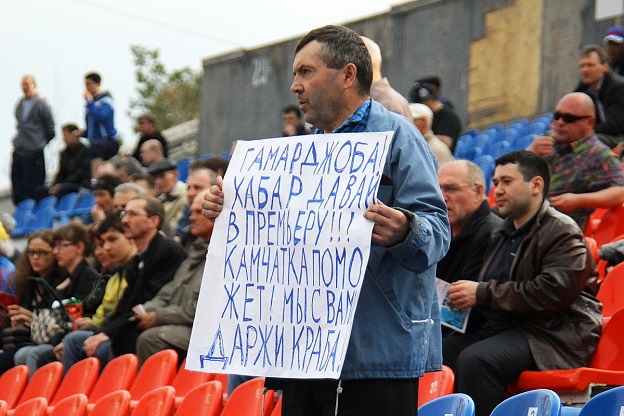 ГАМАРДЖОБА!
ХАБАР ДАВАЙ
В ПРЕМЬЕРУ!!!
КАМЧАТКА ПОМО
ЖЕТ! МЫ С ВАМ
ДАРЖИ КРАБА!